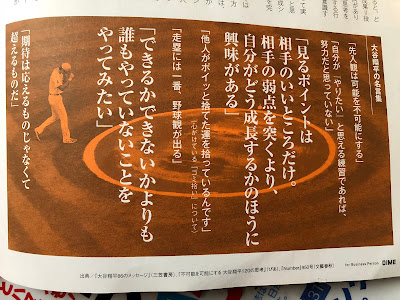 大谷翔平の名言集――
「先入観は可能を不可能にする」
「自分が『やりたい』と思える練習であれば、
努力だと思っていない」
「見るポイントは
相手のいいところだけ。
相手の弱点を突くより、
自分がどう成長するかのほうに
興味がある」
「他人がポイッと捨てた運を拾っているんです」
(心がけている「ゴミ拾い」について)
「走塁には一番、野球観が出る」
「できるかできないかよりも
誰もやっていないことを
やってみたい」
「期待は応えるものじゃなくて
超えるものだ」
for Business Person DIME